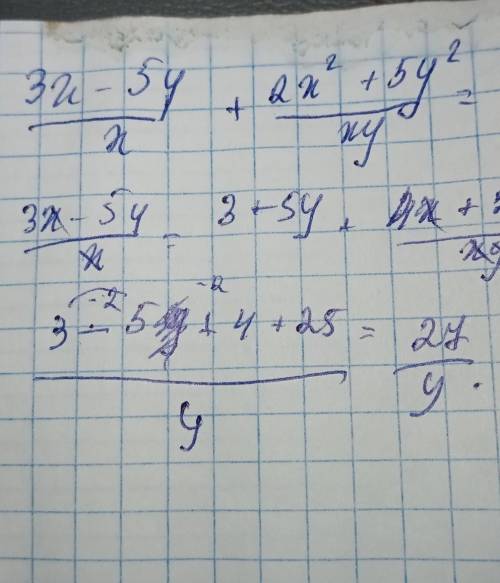 (3x - 5y)/x + (2x² + 5y²)/xy =
(3x - 5y)/x = 3 - 5y + (4x +)/xy
(3 - 5 + 4 + 25)/y = 27/y.